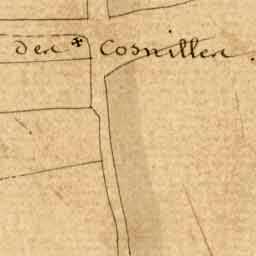 den * Cosnillen.